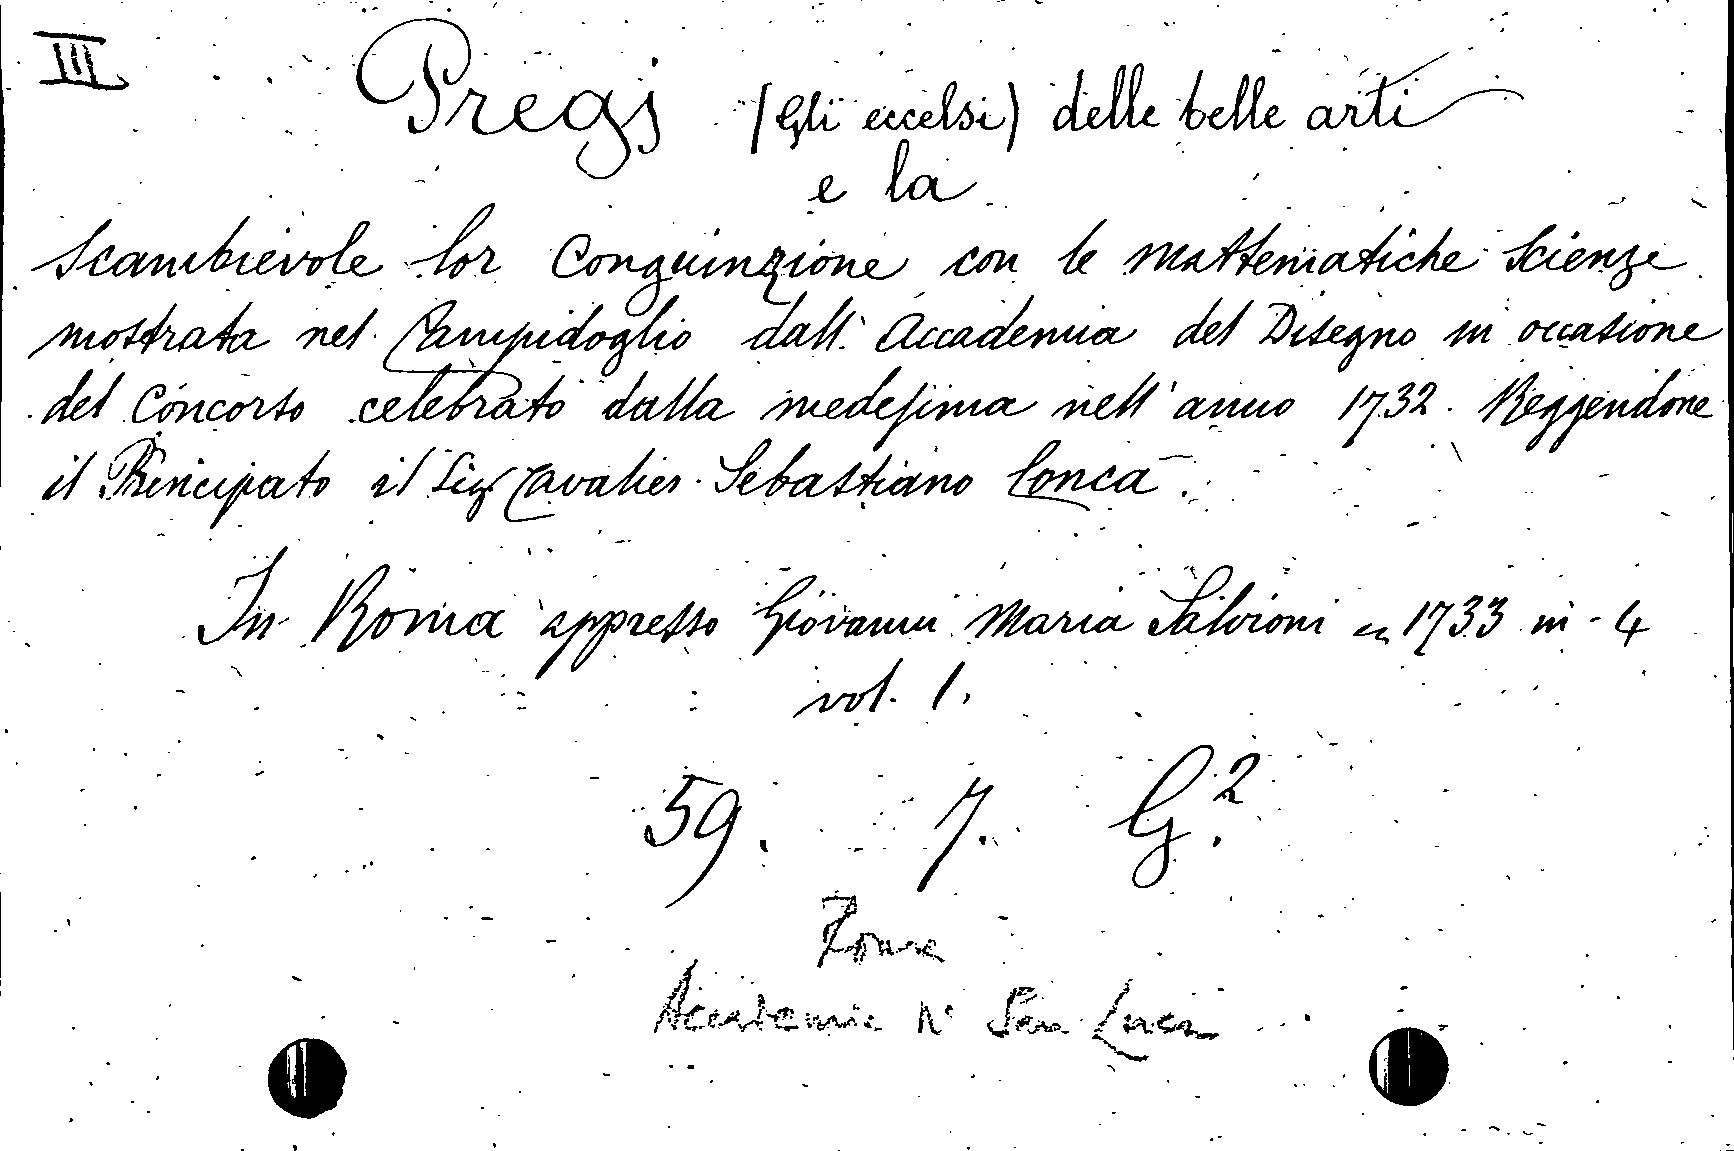 III
Pregj (Gli eccelsi) delle belle arti
e la
Scambievole lor Conguinzione con le Mattematiche Scienze
mostrata nel Campidoglio dall' Accademia del Disegno in occasione
del Concorso celebrato dalla medesima nell' anno 1732. Reggendone
il Principato il Sig Cavalier Sebastiano Conca.
In Roma appresso Giovanni Maria Salvioni 1733 in-4
vol. 1.
59. 7. G.2
Roma
Accademia di San Luca